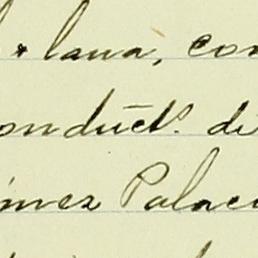 lana, con
onduct. di
mez Palaci